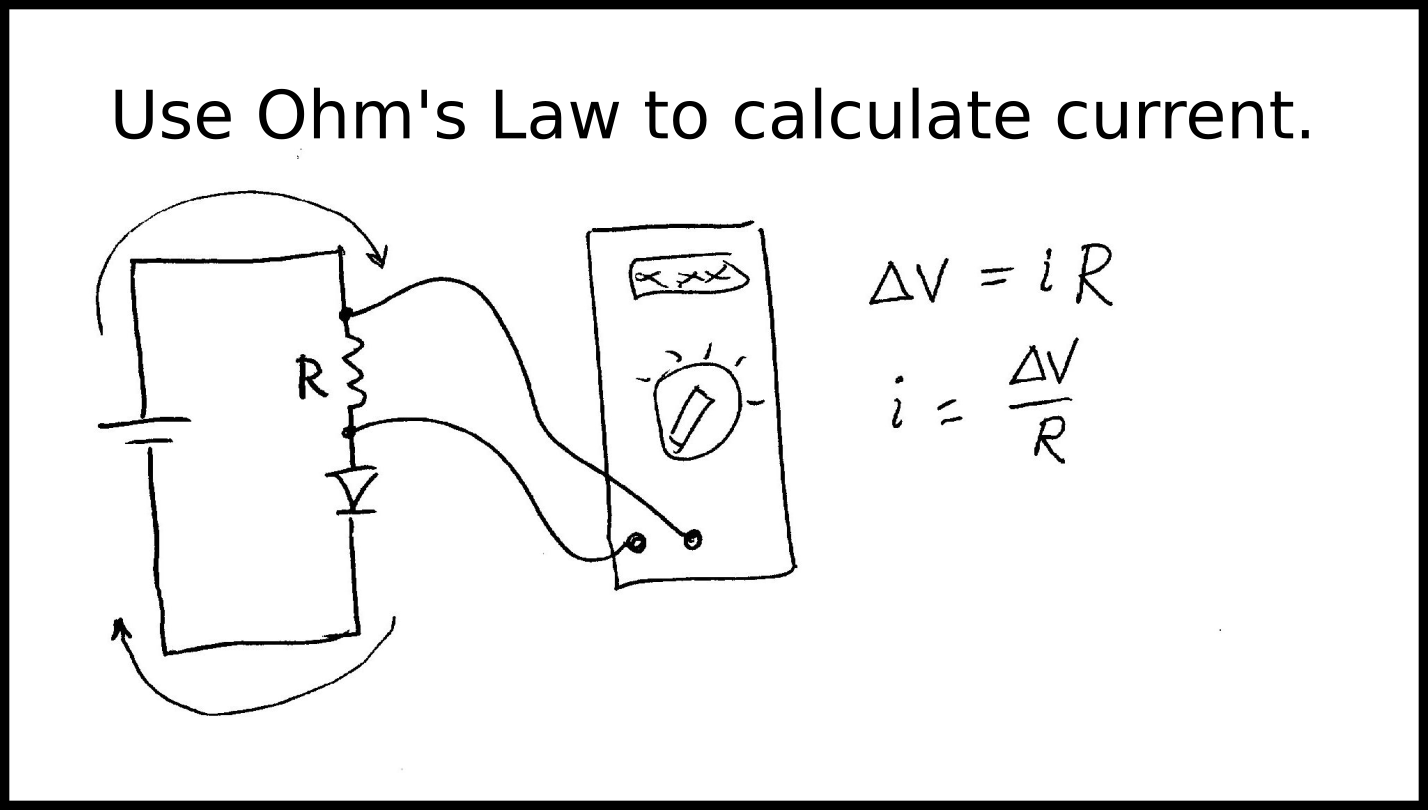 Use Ohm's Law to calculate current.
R
x.xx
ΔV = i R
i = ΔV/R